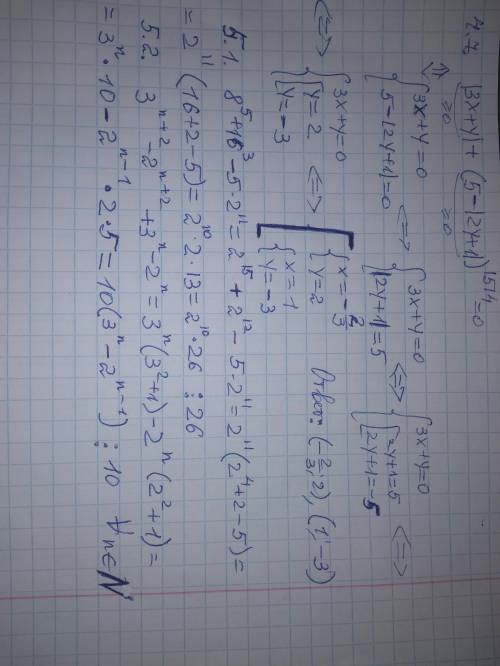 4.7 |3x+y| + (5-|2y+1|)^1514 = 0
≥0 ≥0
⇕
{3x+y=0 {5-|2y+1|=0 <=> {3x+y=0 {|2y+1|=5 <=> {3x+y=0 {[2y+1=5 [2y+1=-5 <=>
<=> {3x+y=0 {[y=2 [y=-3 <=> [{x=-2/3 {y=2 [{x=1 {y=-3 Ответ: (-2/3; 2), (1; -3)
5.1. 8^5+16^3-5·2^11=2^15+2^12-5·2^11=2^11(2^4+2-5)=
=2^11(16+2-5)=2^10·2·13=2^10·26 ⋮ 26
5.2. 3^n+2-2^n+2+3^n-2^n=3^n(3^2+1)-2^n(2^2+1)=
=3^n·10-2^n-1·2·5=10(3^n-2^n-1) ⋮ 10 ∀n∈N